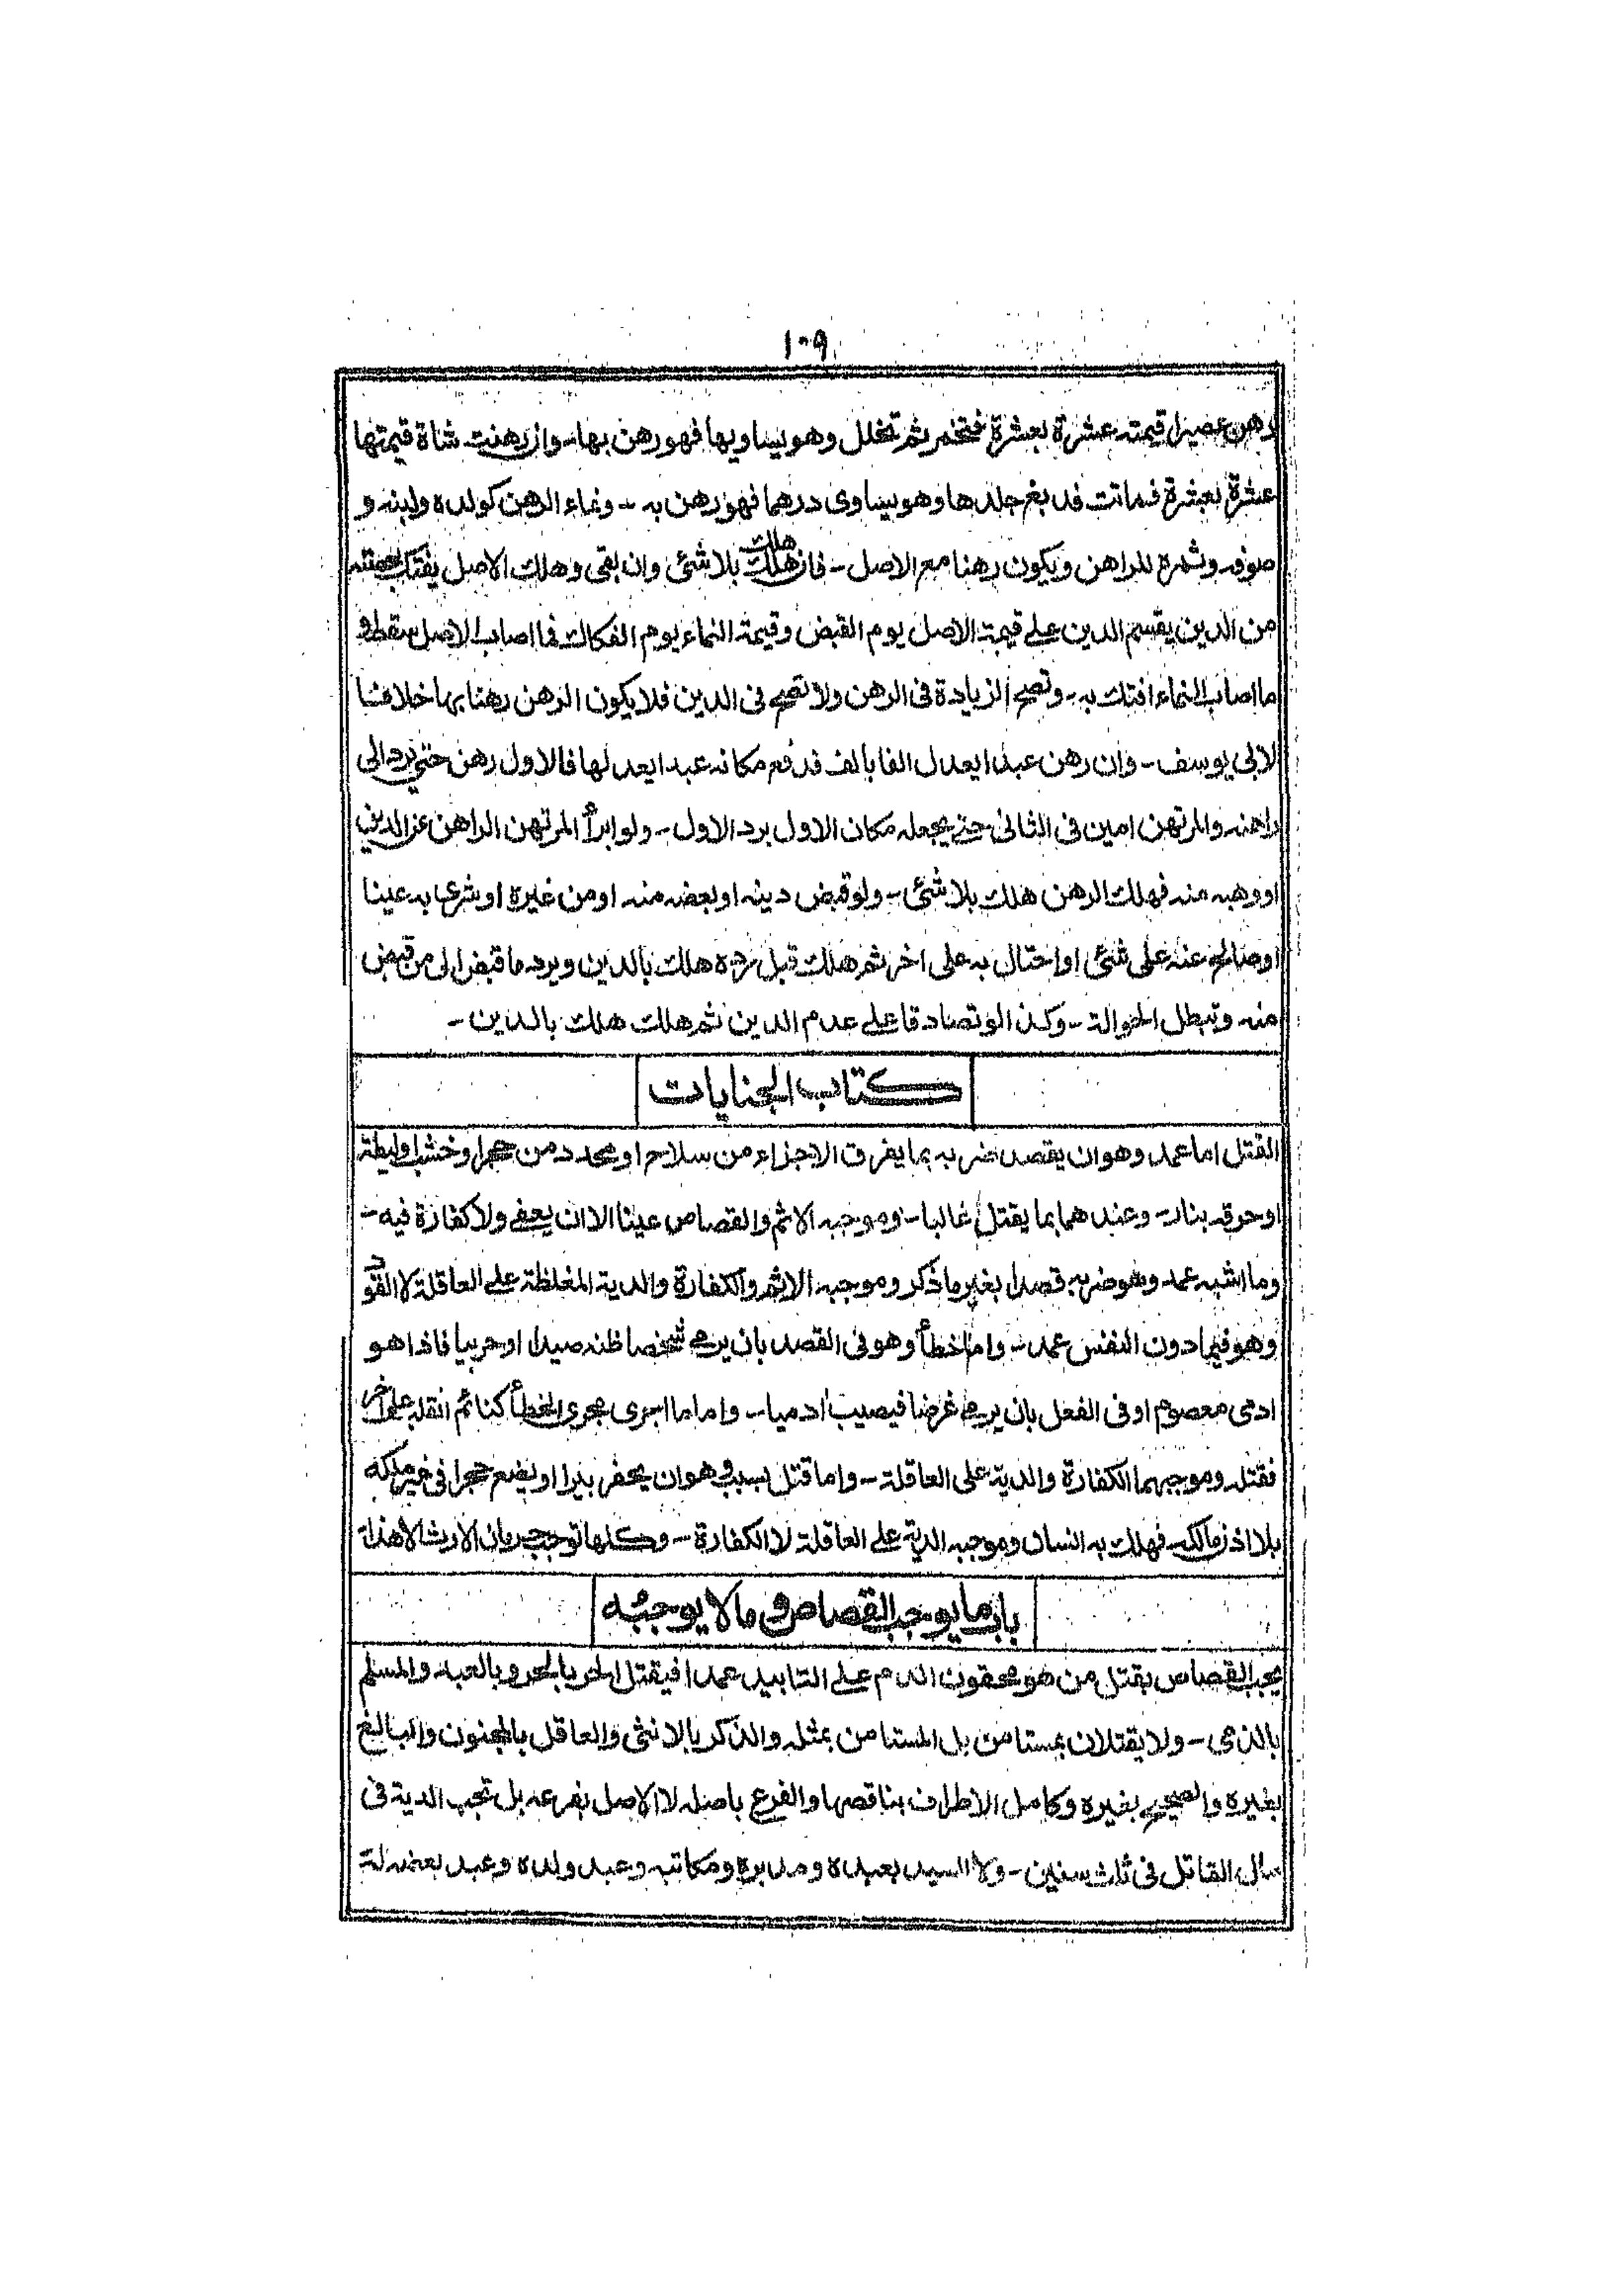 ١٠٩
رهن عصيرا قيمته عشرة بعشرة فتخمر ثم تخلل وهو يساويها فهو رهن بها - وان رهنت شاة قيمتها
عشرة بعشرة فماتت فدبغ جلدها وهو يساوى درهما فهو رهن به - ونماء الرهن كولده ولبنه و
صوفه وثمره للراهن ويكون رهنا مع الاصل - فان هلك هلك بلا شئ وان بقى وهلك الاصل يفتك بحصته
من الدين يقسم الدين على قيمة الاصل يوم القبض وقيمة النماء يوم الفكاك فما اصاب الاصل سقط و
ما اصاب النماء افتك به - وتصح الزيادة فى الرهن ولا تصح فى الدين فلا يكون الرهن رهنا بها خلافا
لابى يوسف - وان رهن عبدا يعدل الفا بالف فدفع مكانه عبدا يعدلها فالاول رهن حتى يرد الى
راهنه والمرتهن امين فى الثانى حتى يجعله مكان الاول برد الاول - ولو ابرأ المرتهن الراهن عن الدين
او وهبه منه فهلك الرهن هلك بلا شئ - ولو قبض دينه او بعضه منه او من غيره او شرى به عينا
او صالح عنه على شئ او احتال به على اخر ثم هلك قبل رده هلك بالدين ويرد ما قبض الى من قبض
منه وتبطل الحوالة - وكذا لو تصادقا على عدم الدين ثم هلك هلك بالدين -
كتاب الجنايات
القتل اما عمد وهو ان يقصد ضربه بما يفرق الاجزاء من سلاح او محدد من حجر او خشب او ليطة
او حرقه بنار - وعندهما بما يقتل غالبا - وموجبه الاثم والقصاص عينا الا ان يعفى ولا كفارة فيه -
وما اشبه عمد وهو ضربه قصدا بغير ما ذكر وموجبه الاثم والكفارة والدية المغلظة على العاقلة لا القود
وهو فيما دون النفس عمد - واما خطأ وهو فى القصد بان يرمى شخصا ظنه صيدا او حربيا فاذا هو
ادمى معصوم او فى الفعل بان يرمى غرضا فيصيب ادميا - واما ما اجرى مجرى الخطأ كنائم انقلب على اخر
فقتله وموجبهما الكفارة والدية على العاقلة - واما قتل بسبب وهو ان يحفر بيرا او يضع حجرا فى غير ملكه
بلا اذن مالكه فهلك به انسان وموجبه الدية على العاقلة لا الكفارة - وكلها توجب حرمان الارث الا هذا
باب ما يوجب القصاص وما لا يوجبه
يجب القصاص بقتل من هو محقون الدم على التابيد عمدا فيقتل الحر بالحر وبالعبد والمسلم
بالذمى - ولا يقتلان بمستامن بل المستامن بمثله والذكر بالانثى والعاقل بالمجنون والبالغ
بغيره والصحيح بغيره وكامل الاطراف بناقصها والفرع باصله لا الاصل بفرعه بل تجب الدية فى
مال القاتل فى ثلث سنين - ولا السيد بعبده ومدبره ومكاتبه وعبد ولده وعبد بعضه له